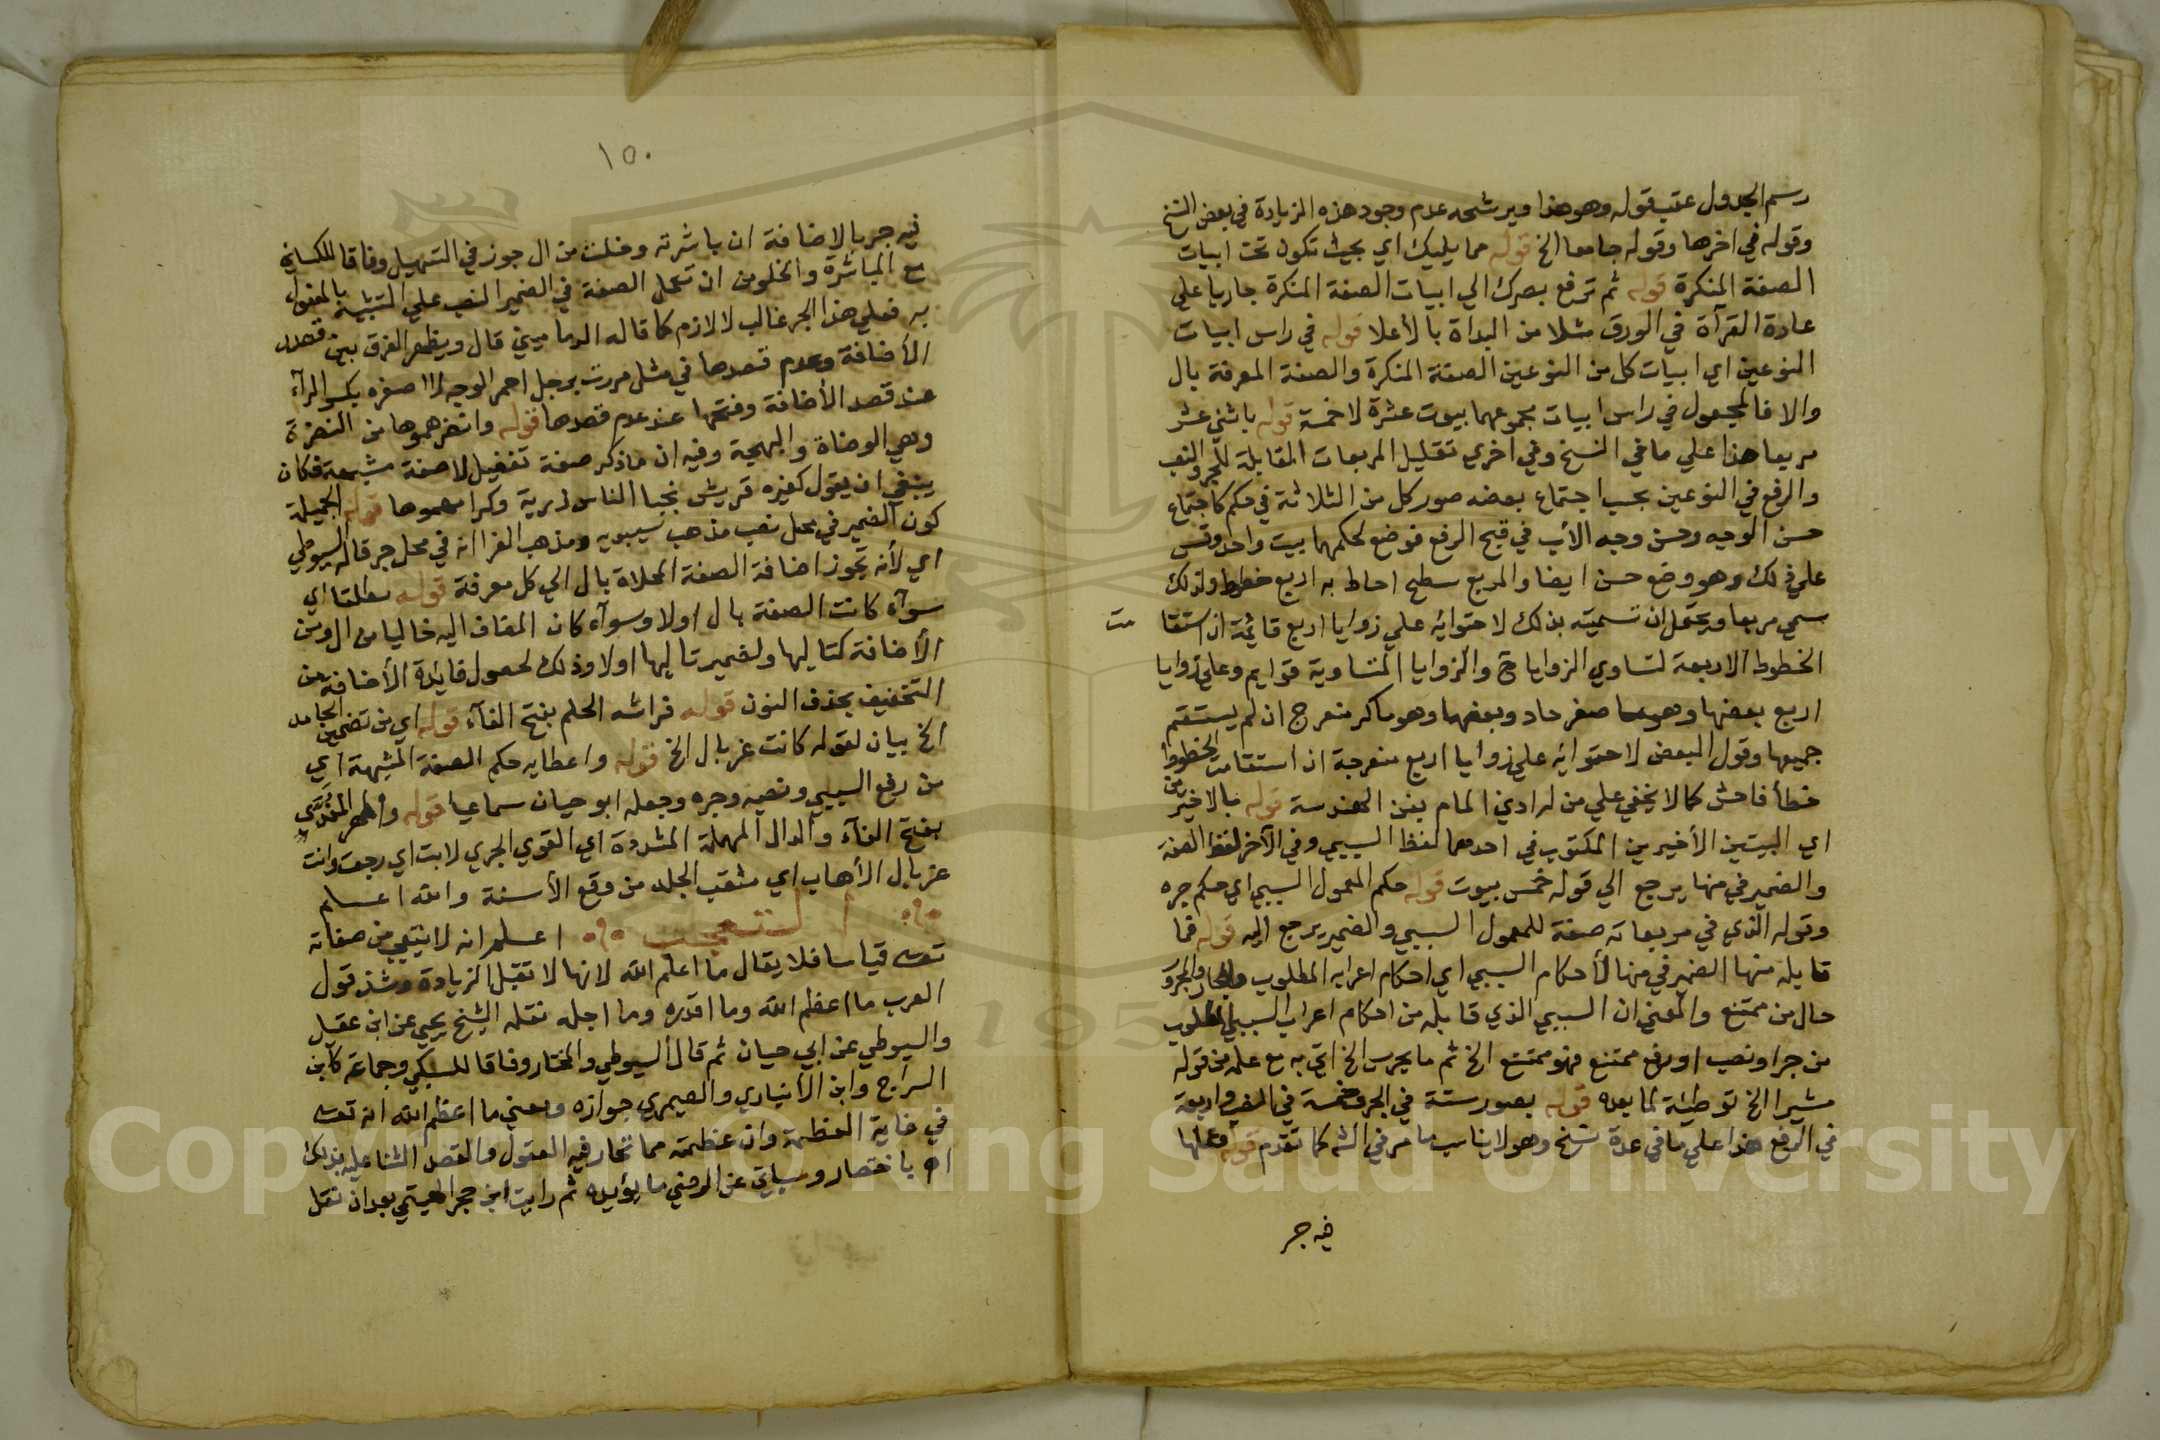 رسم الجدول عقب قوله وهو هذا ويرشحه عدم وجود هذه الزيادة في بعض النسخ
وقوله في اخرها وقوله جامعا الخ قوله مما يليك اي بحيث تكون تحت ابيات
الصفة المنكرة قوله ثم ترفع بصرك الي ابيات الصفة المنكرة جاريا علي
عادة القرآة في الورق مثلا من البداة بالأعلا قوله في راس ابيات
النوعين اي ابيات كل من النوعين الصفة المنكرة والصفة المعرفة بال
والا فالمجعول في راس ابيات مجموعهما بيوت عشرة لا خمسة قوله باثني عشر
مربعا هذا علي ما في النسخ وفي اخري تقليل المربعات المقابلة للجر والنصب
والرفع في النوعين بحسب اجتماع بعضه صور كل من الثلاثة في حكم كاجتماع
حسن الوجيه وحسن وجه الأب في قبح الرفع فوضع لحكمهما بيت واحد وقس
علي ذلك وهو وضع حسن ايضا والمربع سطح احاط به اربع خطوط ولذلك
سمي مربعا ويحتمل ان تسميته بذلك لاحتوائه علي زوايا اربع قائمة ان استقامت
الخطوط الاربعة لتساوي الزوايا ح والزوايا المتساوية قوايم وعلي زوايا
اربع بعضها وهو ما صغر حاد وبعضها وهو ما كبر منفرج ان لم يستقم
جميعها وقول البعض لاحتوائه علي زوايا اربع منفرجة ان استقامت الخطوط
خطأ فاحش كما لا يخفي علي من له ادني المام بفن الهندسة قوله بالاخيرين
اي البيتين الأخيرين المكتوب في احدهما لفظ السببي وفي الآخر لفظ الصفة
والضمير في منها يرجع الي قوله خمس بيوت قوله حكم المعمول السببي اي حكم جره
وقوله الذي في مربعاته صفة للمعمول السببي والضمير يرجع اليه قوله فما
قابله منها الضمير في منها لأحكام السببي اي احكام اعرابه المطلوب والجار والمجرور
حال من ممتنع والمعني ان السببي الذي قابله من احكام اعراب السببي المطلوب
من جر او نصب او رفع ممتنع فهو ممتنع الخ ثم ما يحرس الخ اتي به مع علمه من قوله
مشيرا الخ توطئة لما بعده قوله بصور ستة في الجر وخمسة في النصب واربعة
في الرفع هذا علي ما في عدة نسخ وهو لا يناسب ما مر في الشه كما تقدم قوله وعملها
فيه جر
١٥٠
فيه جر بالاضافة ان باشرته وخلت من ال جوز في التسهيل وفاقا للكساي
مع المباشرة والخلو من ان تعمل الصفة في الضمير النصب علي التشبيه بالمفعول
به فعلي هذا الجر غالب لا لازم كما قاله الدماميني قال ويظهر الفرق بين قصد
الأضافة وعدم قصدها في مثل مررت برجل احمر الوجه لا اصفره بكسر الرآء
عند قصد الأضافة وفتحها عند عدم قصدها قوله وانضرهموها من النضرة
وهي الوضاة والبهجة وفيه ان ما ذكر صفة تفضيل لا صفة مشبهة فكان
ينبغي ان يقول كغيره قريش نجبا الناس ذرية وكرامهموها قوله الجميلة
كون الضمير في محل نصب مذهب سيبويه ومذهب الفرا انه في محل جر قاله السيوطي
اي لأنه يجوز اضافة الصفة المحلاة بال الي كل معرفة قوله مطلقا اي
سوآء كانت الصفة بال اولا وسوآء كان المضاف اليه خاليا من ال ومن
الأضافة كتاليها ولضمير تاليها اولا وذلك لحصول فايدة الأضافة من
التخفيف بحذف النون قوله فراشه الحلم بفتح الفآء قوله اي من تضمين الجامد
الخ بيان لقوله كانت غربال الخ قوله واعطايه حكم الصفة المشبهة اي
من رفع السببي ونصبه وجره وجعله ابو حيان سماعيا قوله والمهر المفدي
بفتح الفآء والدال المهملة المشددة اي القوي الجري لابت اي رجعت وانت
غربال الأهاب اي مثقب الجلد من وقع الأسنة والله اعلم
التعجب اعلم انه لا يبتني من صفاته
تعالى قياسا فلا يقال ما اعلم الله لانها لا تقبل الزيادة وشذ قول
العرب ما اعظم الله وما اقدره وما اجله نقله الشيخ يحيى عن ابن عقيل
والسيوطي عن ابي حيان ثم قال السيوطي والمختار وفاقا للسبكي وجماعة كابن
السراج وابن الأنباري والصيمري جوازه ومعني ما اعظم الله انه تعالى
في غاية العظمة وان عظمته مما تحار فيه العقول والقصد الثنا عليه بذلك
اه باختصار وسياتي عن الرضي ما يؤيده ثم رايت ابن حجر الهيتمي بعد ان نقل